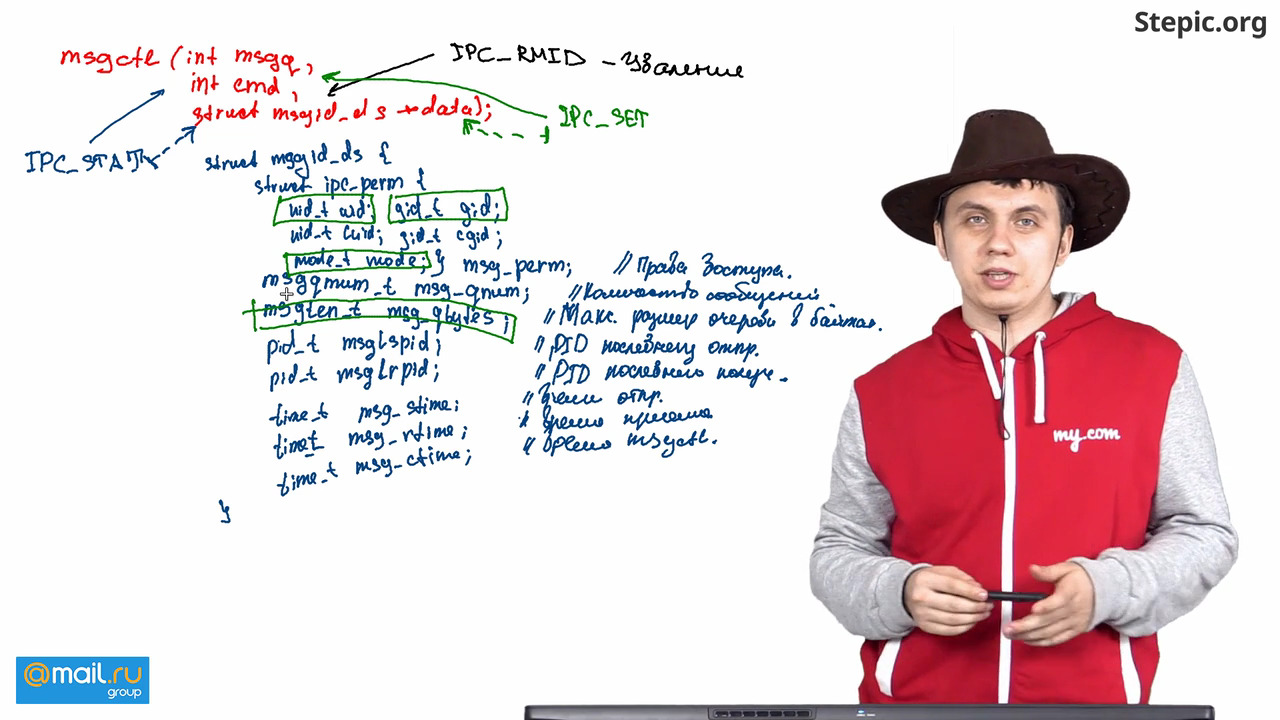 Stepic.org
msgctl (int msgq,
int cmd,
struct msgid_ds *data);
IPC_RMID - Удаление
IPC_SET
IPC_STAT
struct msgid_ds {
struct ipc_perm {
uid_t uid; gid_t gid;
uid_t cuid; gid_t cgid;
mode_t mode; } msg_perm; // Права доступа.
msgqnum_t msg_qnum; // Количество сообщений
msglen_t msg_qbytes; // Макс. размер очереди в байтах.
pid_t msglspid; // PID последнего отпр.
pid_t msglrpid; // PID последнего получ.
time_t msg_stime; // Время отпр.
time_t msg_rtime; // Время приема
time_t msg_ctime; // Время msgctl.
}
my.com
@mail.ru
group